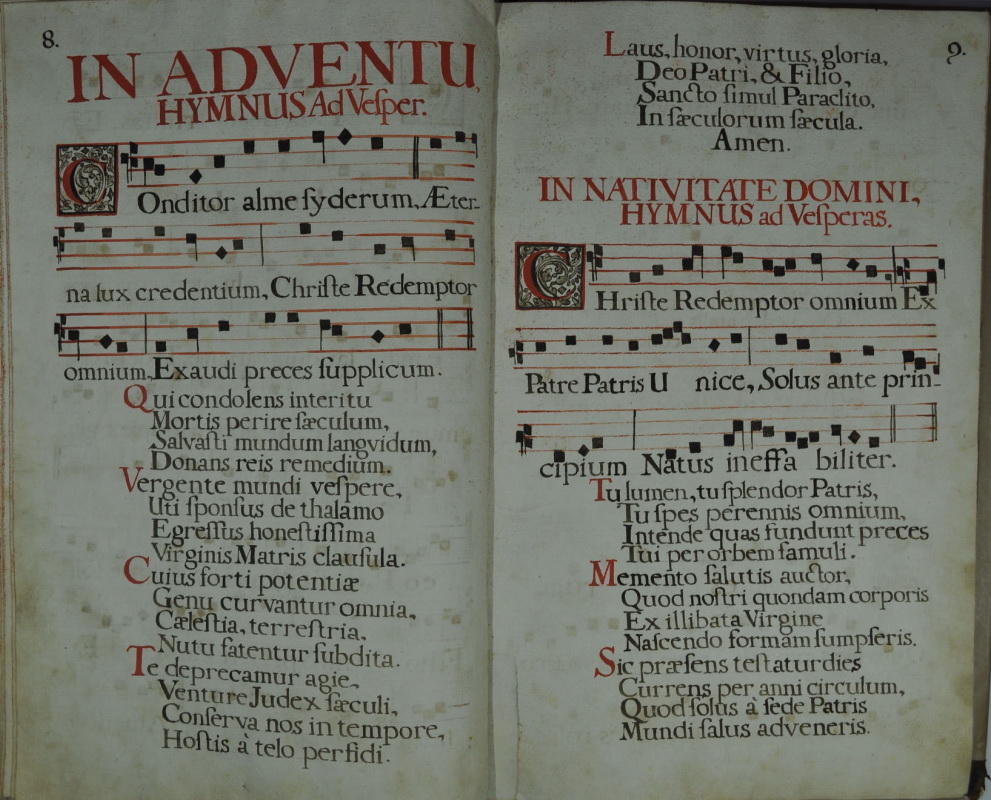 8.
IN ADVENTU,
HYMNUS Ad Veſper.
COnditor alme ſyderum, Æter-
na lux credentium, Chriſte Redemptor
omnium, Exaudi preces ſupplicum.
Qui condolens interitu
Mortis perire ſæculum,
Salvaſti mundum langvidum,
Donans reis remedium.
Vergente mundi veſpere,
Uti ſponſus de thalamo
Egreſſus honeſtiſſima
Virginis Matris clauſula.
Cuius forti potentiæ
Genu curvantur omnia,
Cæleſtia, terreſtria,
Nutu fatentur ſubdita.
Te deprecamur agie,
Venture Judex ſæculi,
Conſerva nos in tempore,
Hoſtis à telo perfidi.
9.
Laus, honor, virtus, gloria,
Deo Patri, & Filio,
Sancto ſimul Paraclito,
In ſæculorum ſæcula.
Amen.
IN NATIVITATE DOMINI,
HYMNUS ad Veſperas.
CHriſte Redemptor omnium Ex
Patre Patris U nice, Solus ante prin-
cipium Natus ineffa biliter.
Tu lumen, tu ſplendor Patris,
Tu ſpes perennis omnium,
Intende quas fundunt preces
Tui per orbem famuli.
Memento ſalutis auctor,
Quod noſtri quondam corporis
Ex illibata Virgine
Naſcendo formam ſumpſeris.
Sic præſens teſtatur dies
Currens per anni circulum,
Quod ſolus à ſede Patris
Mundi ſalus adveneris.